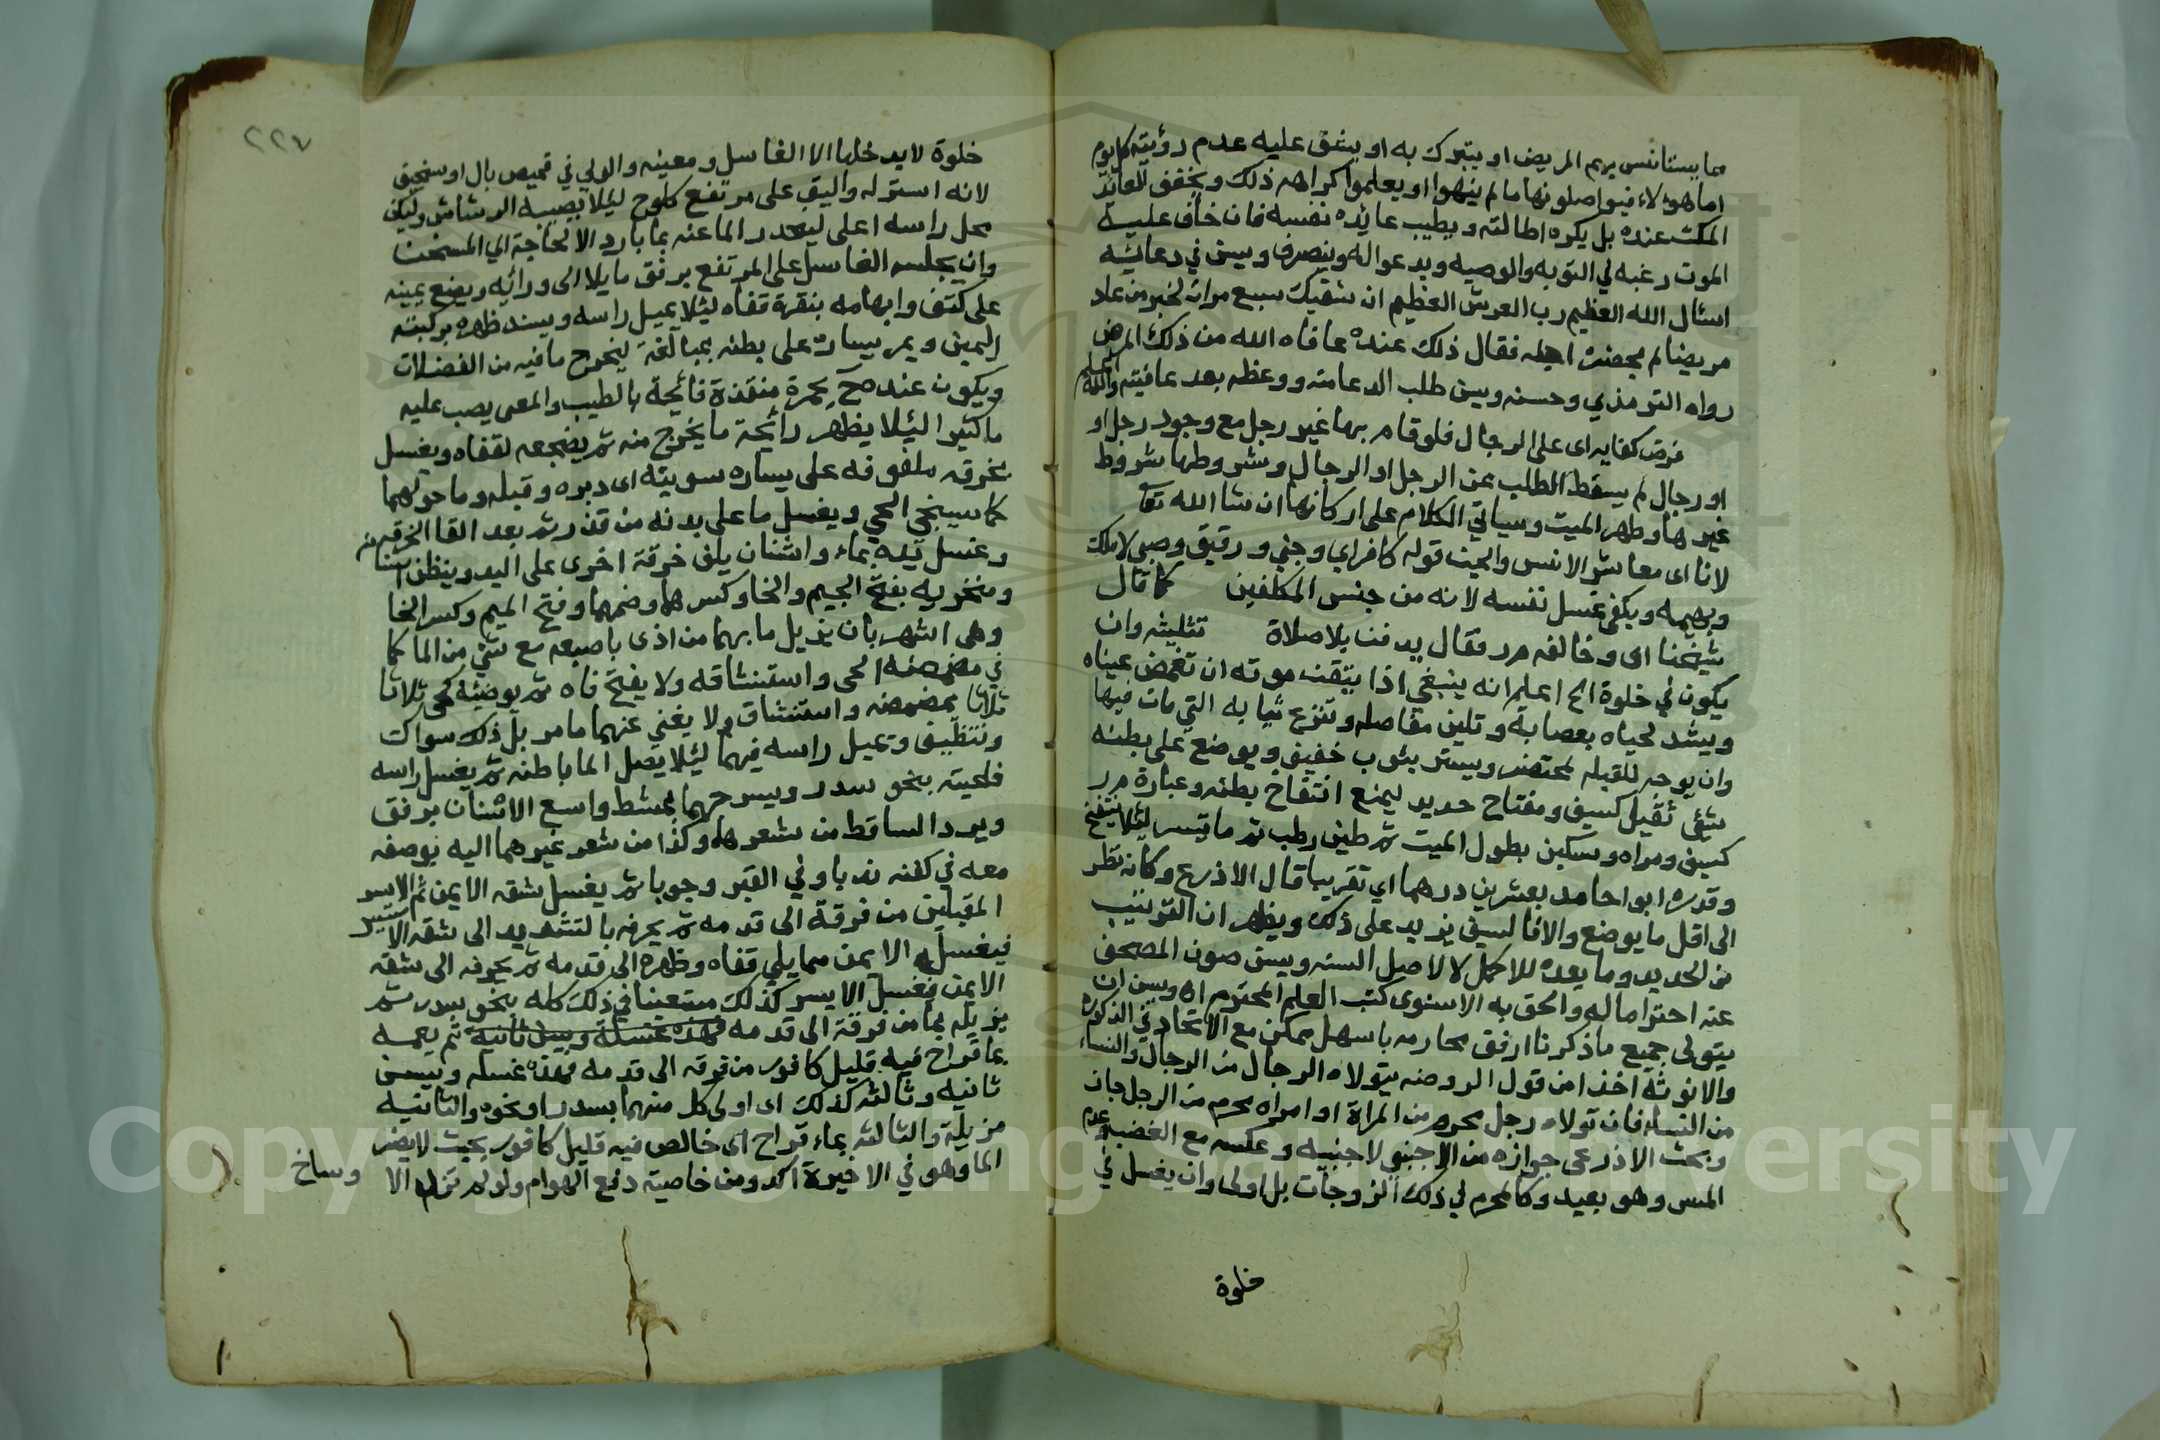 مما يستانس بهم المريض او يتبرك به او يشق عليه عدم رؤيته كل يوم
اما هؤلاء فيواصلونها ما لم ينهوا او يعلموا كراهه ذلك ويخفف العائد
المكث عنده بل يكره اطالته ويطيب عائده نفسه فان خاف عليه
الموت رغبه لي التوبه والوصيه ويدعو اله وينصرف ويسن في دعائه
اسئال الله العظيم رب العرش العظيم ان يشفيك سبع مرات لخبر من عاد
مريضا لم يحضره اجله فقال ذلك عنده عافاه الله من ذلك المرض
رواه الترمذي وحسنه ويسن طلب الدعا منه ووعظه بعد عافيته والله اعلم
فرض كفايه اى على الرجال فلو قام بها غير رجل مع وجود رجل او
او رجال لم يسقط الطلب عن الرجل او الرجال وشروطها شروط
غيرها وطهر الميت وسياتي الكلام على اركانها ان شا الله تعا
لانا اى معاشر الانس والجن قوله كافر اي وجني ورقيق وصبي لا ملك
وبهيمه ويكفي غسل نفسه لانه من جنس المكلفين كما قال
شيخنا اى وخالفه م ر فقال يدفن بلا صلاة تثليثه وان
يكون في خلوة الخ اعلم انه ينبغي اذا تيقن موته ان تغمض عيناه
ويشد لحياه بعصابة وتلين مفاصله وتنزع ثيابه التي مات فيها
وان يوجه للقبله كمحتضر ويستر بثوب خفيف ويوضع على بطنه
شئي ثقيل كسيف ومفتاح حديد ليمنع انتفاخ بطنه وعبارة م ر
كسيف ومراه وسكين بطول الميت ثم طين رطب ثم ما تيسر لئلا ينتفخ
وقدره ابو احامد بعشرين درهما اي تقريبا قال الاذرعي وكانه نظر
الى اقل ما يوضع والا فالسيف يزيد على ذلك ويظهر ان الترتيب
من الحديد وما بعده للاكمل لا لاصل السنه ويسن صون المصحف
عنه احتراما له والحق به الاسنوى كتب العلم المحترم اه ويسن ان
يتولى جميع ما ذكرنا ارفق محارمه باسهل ممكن مع الاتحاد في الذكوره
والانوثة اخذا من قول الروضه يتولاه الرجال من الرجال والنساء
من النساء فان تولاه رجل محرم من المراة او امراه محرم من الرجل جاز
وبحث الاذرعي جوازه من الاجنبي لاجنبيه وعكسه مع الغض وعدم
المس وهو بعيد وكالمحرم لي ذلك الزوجات بل اولى وان يغسل في
خلوة
٢٢٧
خلوة لا يدخلها الا الغاسل ومعينه والولي في قميص بال او سخيف
لانه استر له واليق على مرتفع كلوح ليلا يصيبه الرشاش وليكن
محل راسه اعلى لينحدر الما عنه بما بارد الا لحاجة الي المسخن
وان يجلسه الغاسل على المرتفع برفق مايلا الى ورائه ويضع يمينه
على كتف وابهامه بنقرة قفاه ليئلا يميل راسه ويسند ظهره بركبته
اليمنى ويمر يساره على بطنه بمبالغة ليخرج ما فيه من الفضلات
ويكون عنده ح مجمرة متقدة فائحة بالطيب والمعى يصب عليه
ما كثيرا ليئلا يظهر رائحة ما يخرج منه ثم يضجعه لقفاه ويغسل
بخرقه ملفوفه على يساره سويته اى دبره وقبله وما حولهما
كما يستنجي الحي ويغسل ما على بدنه من قذر ثم بعد القا الخرقه
وغسل يده بماء واشنان يلف خرقة اخرى على اليد وينظف اسنانه
ومنخريه بفتح الجيم والخا وكسرهما وضمهما وفتح الميم وكسر الخا
وهى اشهر بان يزيل ما بهما من اذى باصبعه مع شئي من الما كما
في مضمضه الحى واستنشاقه ولا يفتح فاه ثم يوضئه كحي ثلاثا
ثلاثا بمضمضه واستنشاق ولا يغني عنهما ما مر بل ذلك سواك
وتنظيف وتميل راسه فيهما ليئلا يصل الما باطنه ثم يغسل راسه
فلحيته بنحو سدر ويسرحهما بمشط واسع الاسنان برفق
ويرد الساقط من شعرهما وكذا من شعر غيرهما اليه فوضعه
معه في كفنه ندبا وفي القبر وجوبا ثم يغسل شقه الايمن ثم الايسر
المقبلين من فرقة الى قدمه ثم يحرفه بالتشديد الى شقه الايسر
فيغسل الايمن مما يلي قفاه وظهره الى قدمه ثم يحرفه الى شقه
الايمن فيغسل الايسر كذلك مستعينا في ذلك كله بنحو سدر ثم
يزيله بما من فرقة الى قدمه فهذه غسلة ويسن ثانية ثم يعمه
بما قراح فيه قليل كافور من فرقه الى قدمه فهذه غسله ويسن
ثانيه وثالثه كذلك اى اولى كل منهما بسدر او نحوه والثانيه
مزيلة والثالثه بماء قراح اى خالص فيه قليل كافور بحيث لا يضر
الما وهو في الاخيرة اكد ومن خاصيته دفع الهوام ولو لم تزل الا
وساخ
Copyright © King Saud University